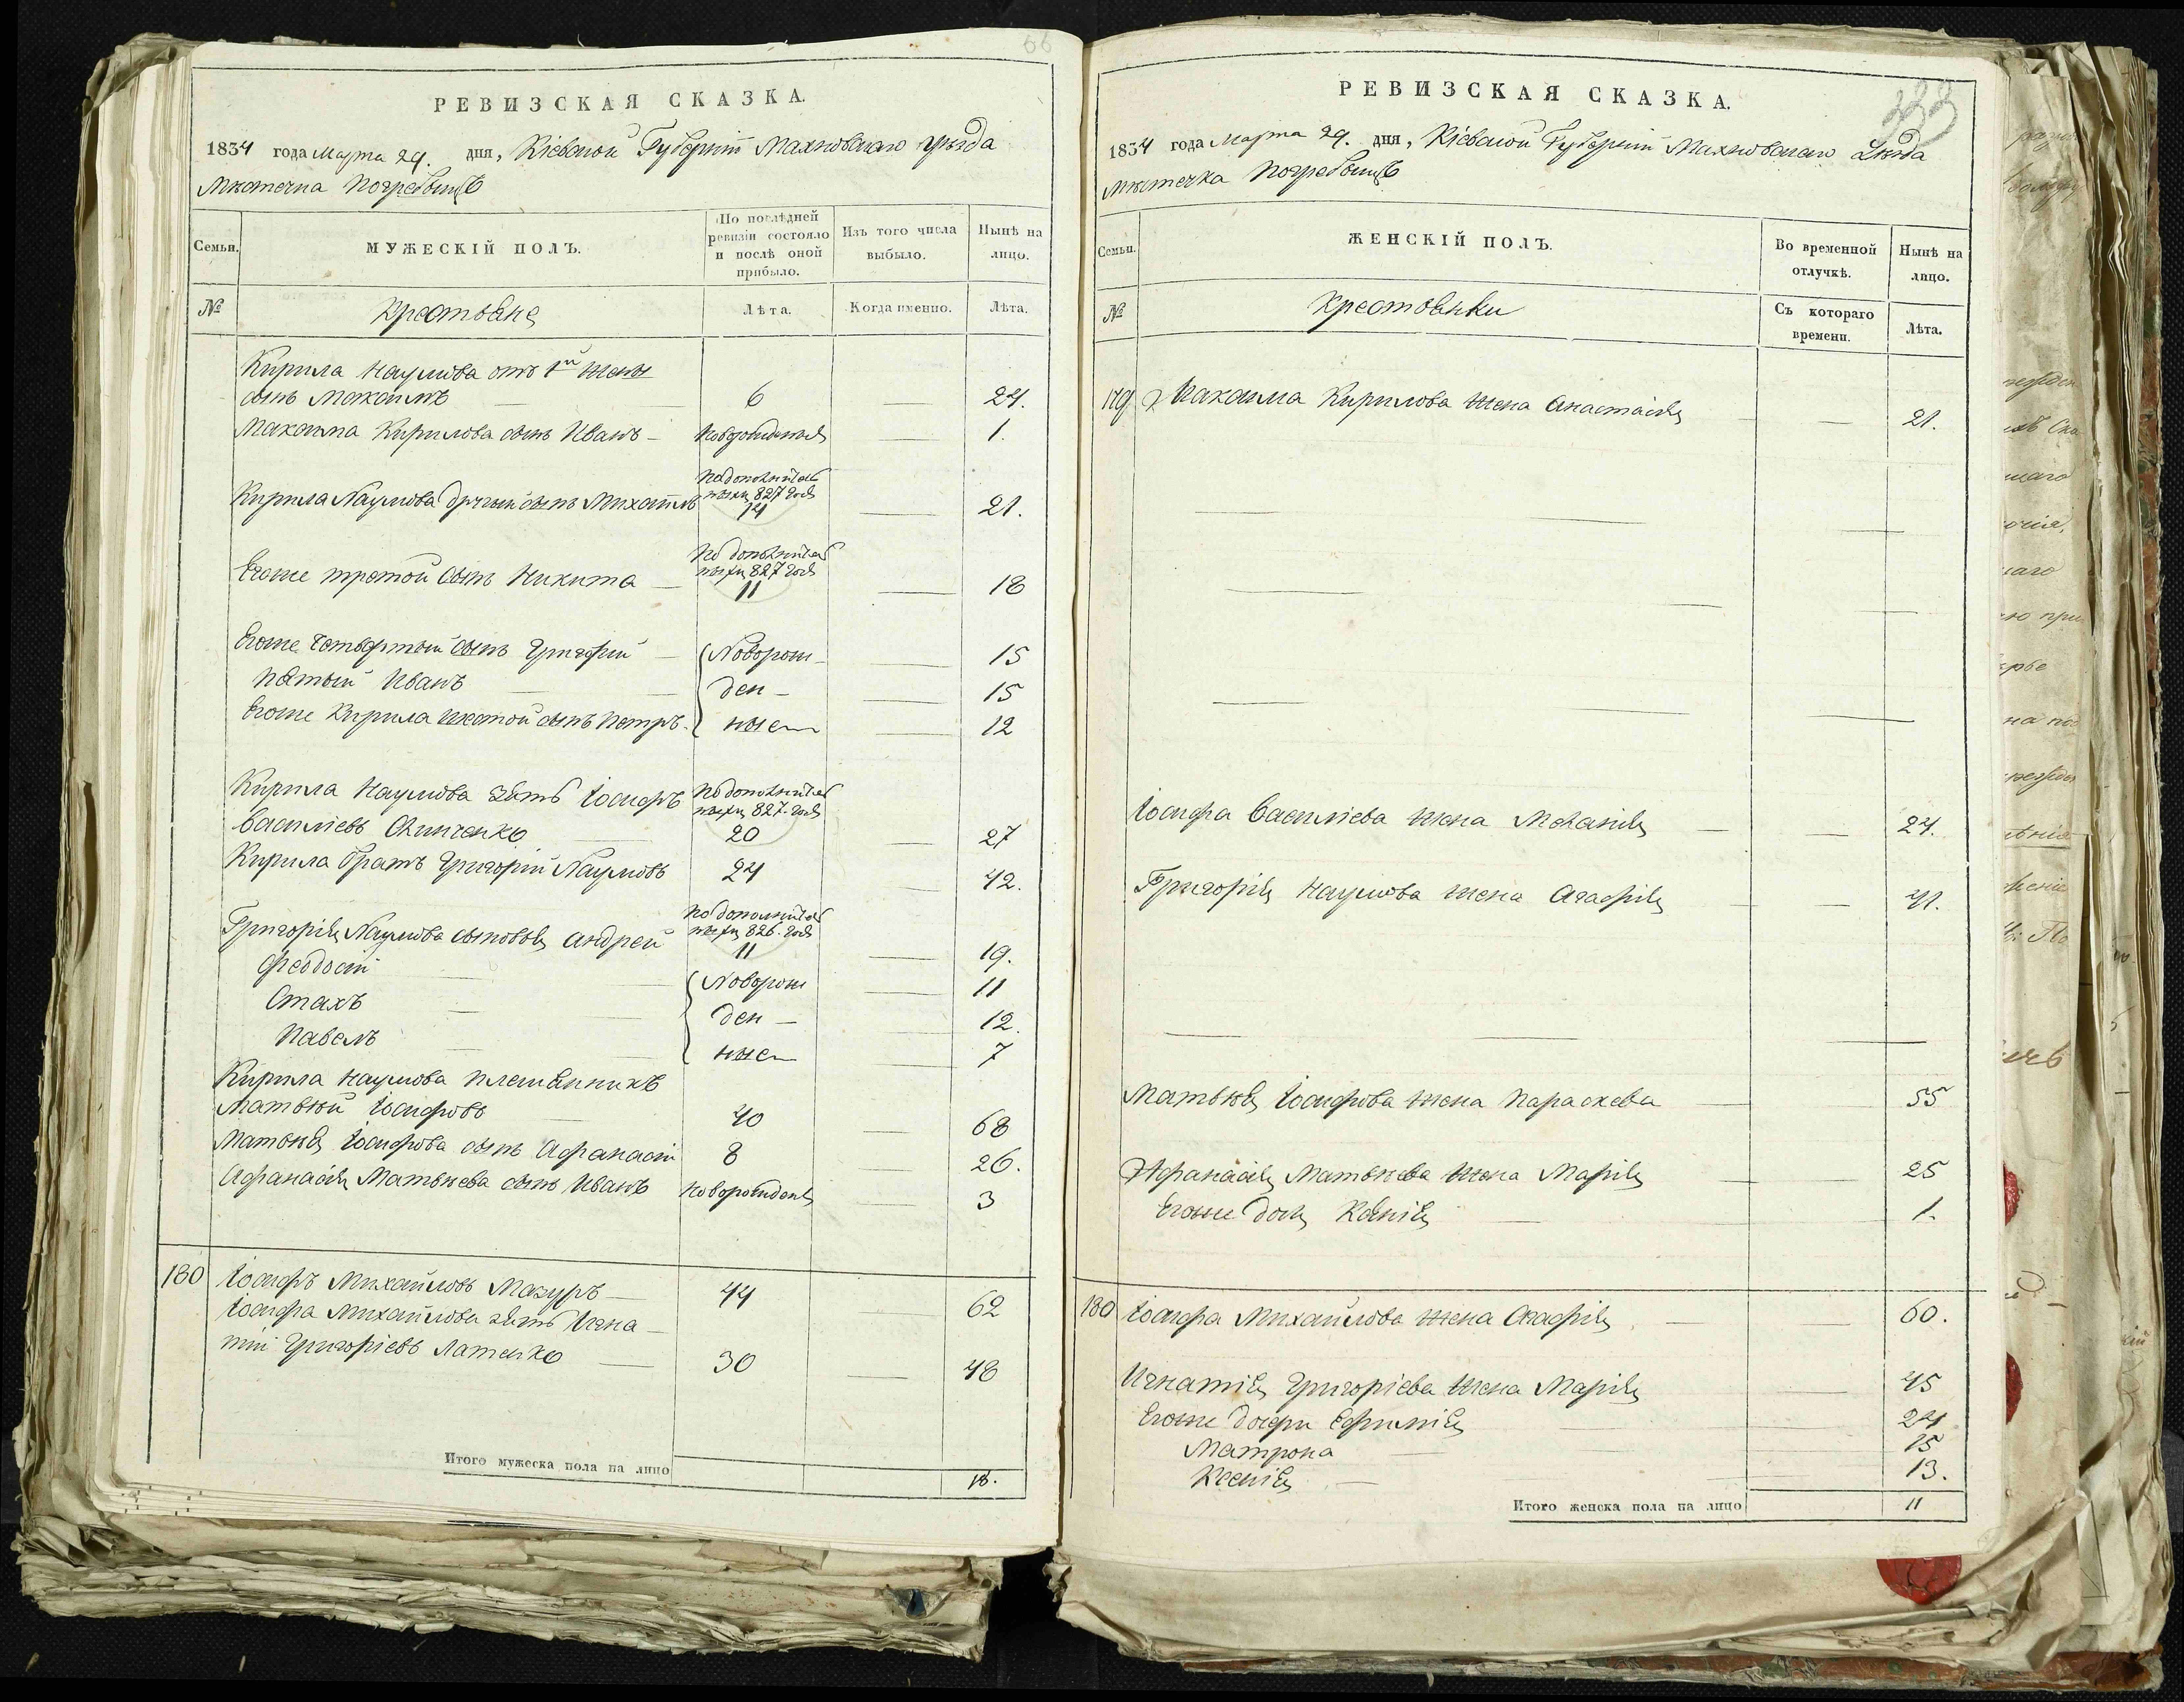 66
РЕВИЗСКАЯ СКАЗКА.
1834 года Марта 29. дня, Кіевской Губерніи Махновскаго уѣзда
Мѣстечка Погребыщъ
Семьи.
МУЖЕСКІЙ ПОЛЪ.
По послѣдней ревизіи состояло и послѣ оной прибыло.
Изъ того числа выбыло.
Нынѣ на лицо.
№
Крестьяне
Лѣта.
Когда именно.
Лѣта.
Кирила Наумова отъ 1й жены
сынъ Максимъ 6 24.
Максима Кирилова сынъ Иванъ новорожденный 1.
По дополнитель
ной 827 года
Кирила Наумова другий сынъ Михаилъ 14 21.
По дополнитель
827 года
Егоже третой сынъ Никита 11 18
Егоже четвертый сынъ Григорій Новорож 15
пятый Иванъ ден 15
Егоже Кирила шестой сынъ Петръ ные 12
Кирила Наумова зять Іосифъ По дополнитель
827 года
Василіевъ 20 27
Кирила братъ Григорій Наумовъ 24 42.
По дополнитель
826 года
Григорія Наумова сыновья Андрей 11 19.
Феодосій Новорож 11
Стахъ ден 12.
Павелъ ные 7
Кирила Наумова племянникъ
Матвѣй Іосифовъ 40 68
Матвѣя Іосифова сынъ Афанасій 8 26.
Афанасія Матвѣева сынъ Иванъ новорожденъ 3
180 Іосифъ Михайловъ Мазуръ 44 62
Іосифа Михайлова зять Игна
тій Григоріевъ 30 48
Итого мужеска пола на лицо 18.
333
РЕВИЗСКАЯ СКАЗКА.
1834 года Марта 29. дня, Кіевской Губерніи Махновскаго уѣзда
Мѣстечка Погребыщъ
Семьи.
ЖЕНСКІЙ ПОЛЪ.
Во временной отлучкѣ.
Нынѣ на лицо.
№
Крестьянки
Съ котораго времени.
Лѣта.
179 Максима Кирилова жена Анастасія 21.
Іосифа Василіева жена Меланія 24.
Григорія Наумова жена Агафія 41.
Матвѣя Іосифова жена Параскева 55
Афанасія Матвѣева жена Марія 25
Егоже дочь Ксенія 1.
180 Іосифа Михайлова жена Агафія 60.
Игнатія Григоріева жена Марія 45
Егоже дочери Ефимія 24
Матрона 15
Ксенія 13.
Итого женска пола на лицо 11